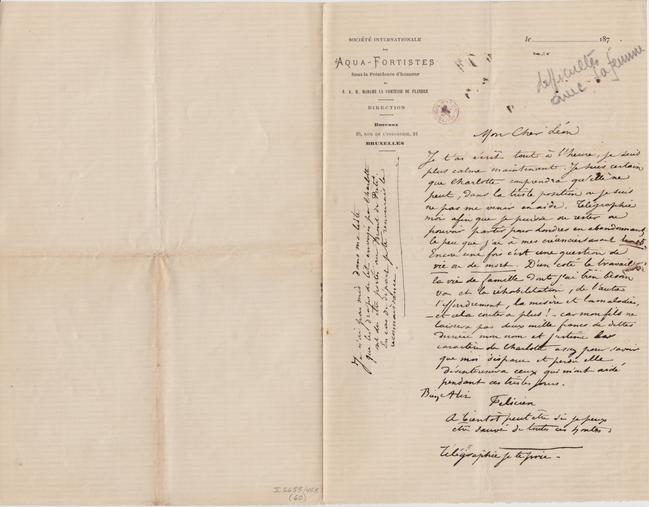 SOCIÉTÉ INTERNATIONALE
DES
AQUA-FORTISTES
Sous la Présidence d'honneur
DE
S. A. R. MADAME LA COMTESSE DE FLANDRE
DIRECTION
Bureaux
BRUXELLES
le 187
difficultés
avec sa femme
Mon Cher Léon
Je t'ai écrit tout à l'heure, je suis
plus calme maintenant. Je suis certain
que Charlotte comprendra qu'elle ne
peut, dans la triste position où je suis
ne pas me venir en aide. Télégraphie
moi afin que je puisse ou rester ou
pouvoir partir pour Londres en abandonnant
le peu que j'ai à mes créanciers avant
Encore une fois c'est une question de
vie ou de mort. D'un coté le travail
la vie de famille dont j'ai bien besoin
et la réhabilitation, de l'autre
la misère et la maladie,
et cela coutera plus! car mon fils ne
laissera pas deux mille francs de dettes
derrière mon nom et j'estime le
caractère de Charlotte assez pour savoir
que moi disparu et perdu elle
désintéressera ceux qui m'ont aidé
pendant ces tristes jours.
Bien à toi
Félicien
A bientot peut etre si je peux
etre sauvé de toutes ces hontes
Télégraphie je te prie.
Je n'ai pas mis dans ma liste
que les draps de lits envoyés par Charlotte
ont du etre portés au Mont de Piété.
En cas de départ je te renverrais la
reconnaissance!
I 6655/458
(60)